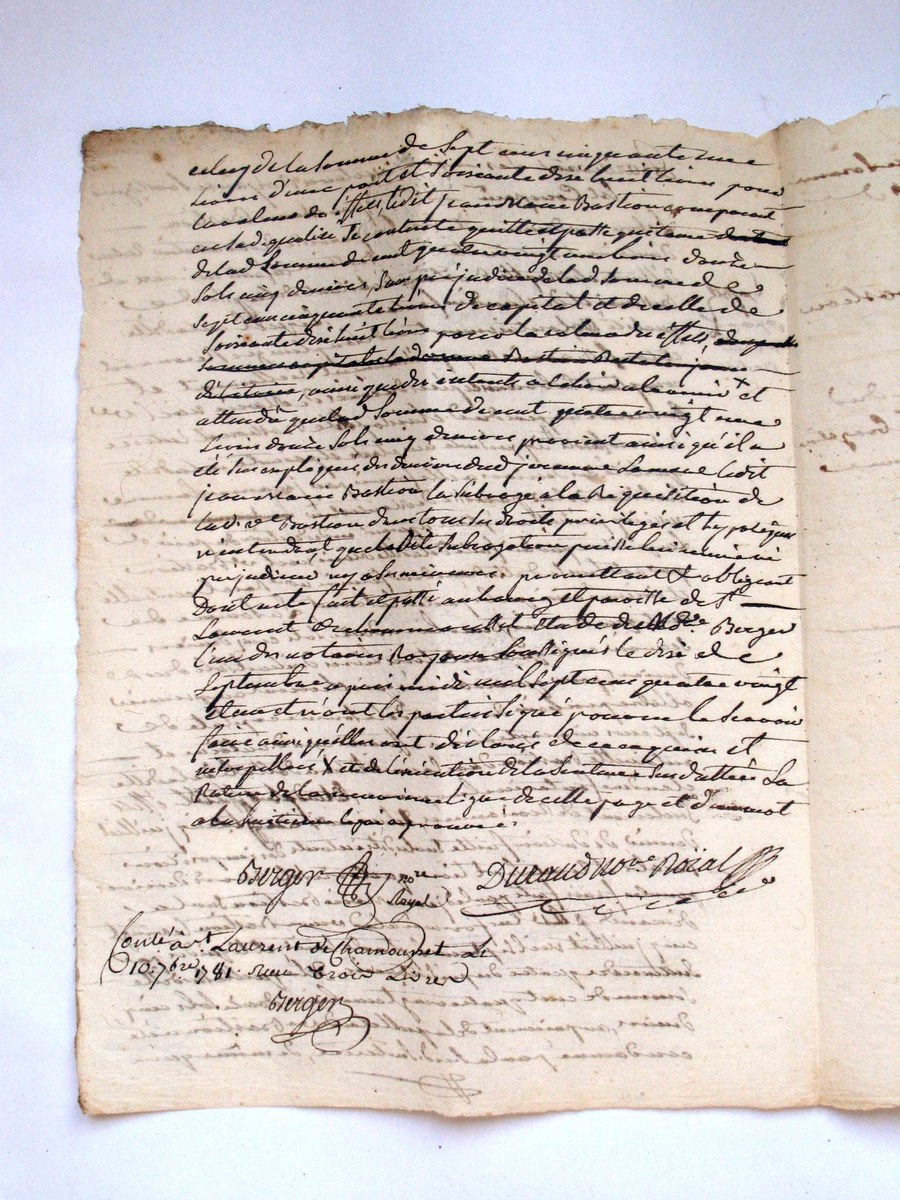 celuy de la Somme de Sept cens cinquante une
Livres d'une part et Soixante dix huit Livres pour
la valeur de effets ledit Jean Marie Bastion comparant
en sad. qualité Se contente quitte et passe quittance
de lad Somme de cent quatre vingt une Livres douze
Sols cinq deniers, Sans préjudice de lad Somme de
Sept cens cinquante Livres de capital et de celle de
Soixante dix huit Livres pour la valeur des effets
ainsi que des intérêts à échoir à l'avenir X et
attendû que lad Somme de cent quatre vingt une
Livres douze Sols cinq deniers provient ainsi qu'il a
été Sus expliqué des deniers dud
jean marie Bastion la Subrogé à la Réquisition de
lad. ve Bastion dans tous Ses droits privilégiés et hypotéques
n'entendant que ladite Subrogation puisse lui nuire ni
préjudicier promettant & obligeant
Dont acte fait et passé au bourg et paroisse de St.
Laurent de chamousset Etude de Me. Berger
l'un des notaires Royaux Soussignés le dix de
Septembre après midi mil Sept cens quatre vingt
et un et n'ont les parties Signé pour ne le Scavoir
faire ainsi qu'elles ont déclaré de ce enquises et
interpellées X et de l'exécution de la Sentence Sus dattée La
Rature de la neuvieme ligne de cette page et d'un mot
à la huitieme
Berger nore Royal
Durand nore Roïal
Contlé à St. Laurent de Chamousset Le
10. 7bre 1781. Reçu Trois Livres
Berger